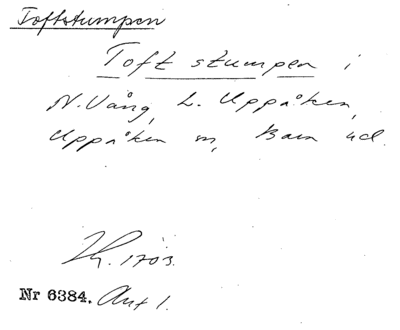 Toftstumpen
Toft stumpen i
N. Vång, L. Uppåkra,
Uppåkra sn, Bara hd.
1703.
Nr 6384. Akt 1.